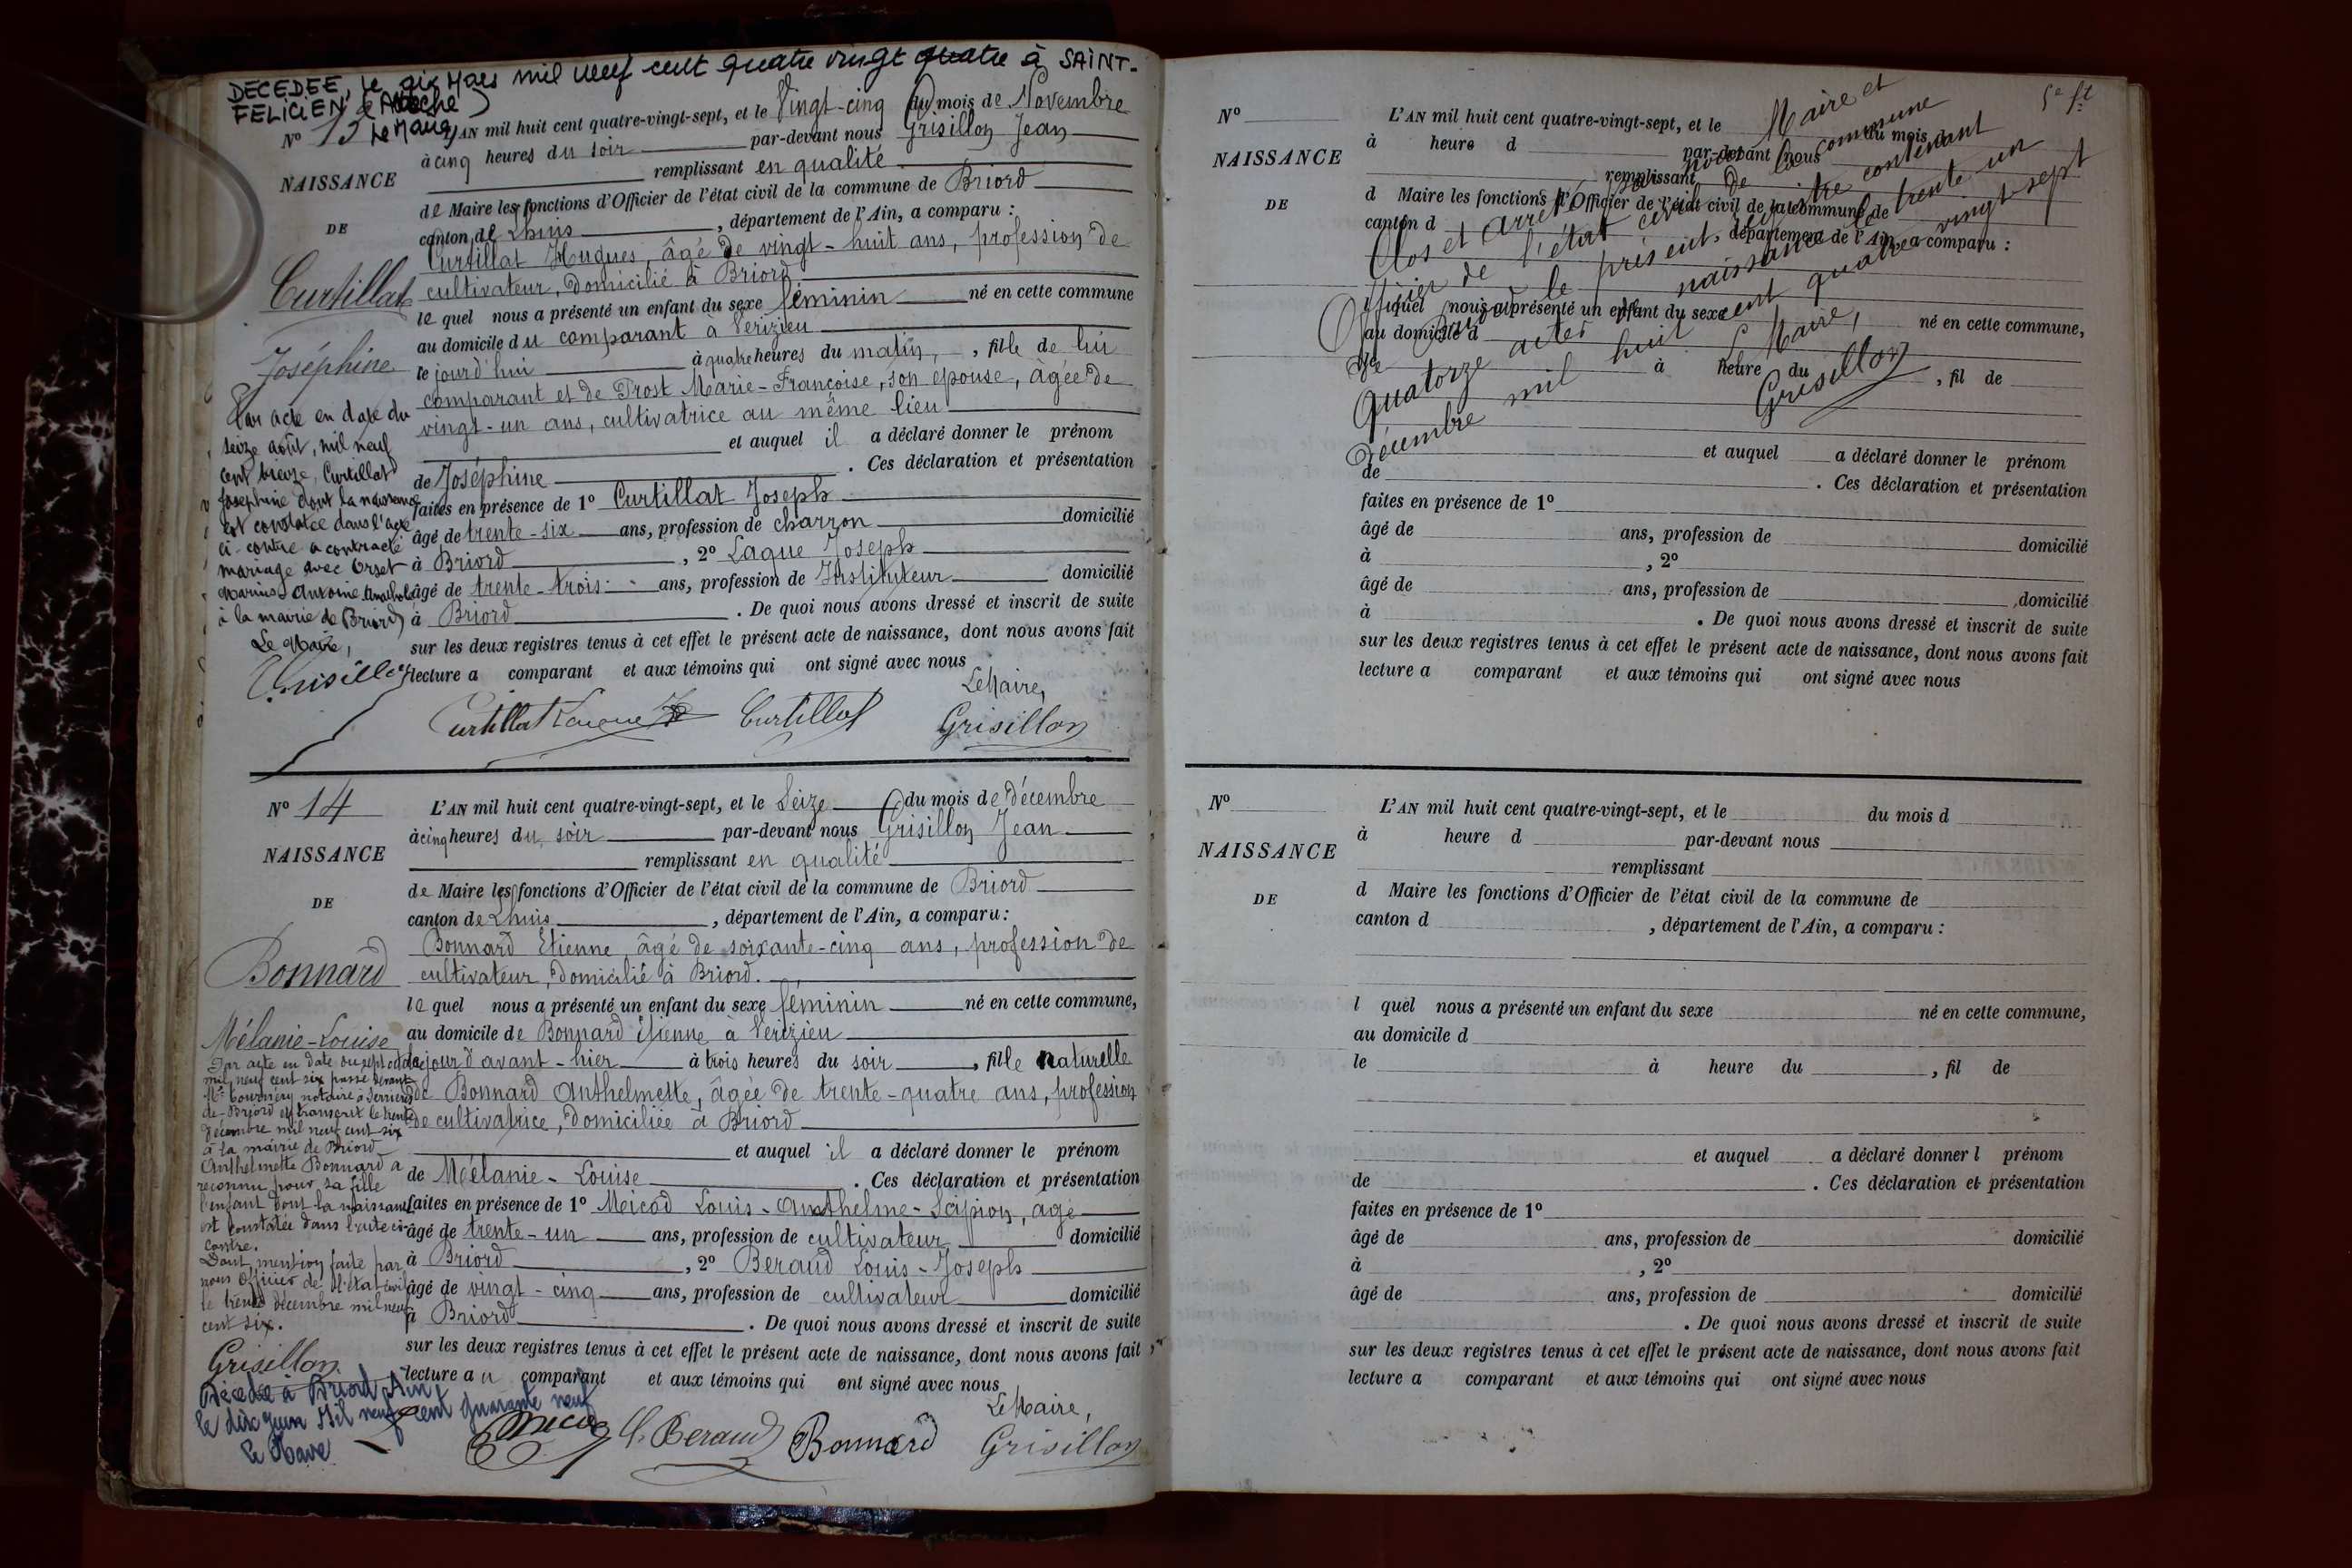 DECEDEE, le dix Mars mil neuf cent quatre vingt quatre à SAINT-
FELICIEN (Ardèche)
Le Maire
No 13
NAISSANCE
DE
Curtillat
Joséphine
Par acte en date du
seize août, mil neuf
cent treize, Curtillat
Joséphine dont la naissance
est constatée dans l'acte
ci-contre a contracté
mariage avec Orset
Marius Antoine
à la mairie de Briord
Le Maire,
Grisillon
L'AN mil huit cent quatre-vingt-sept, et le Vingt-cinq du mois de Novembre
à cinq heures du soir par-devant nous Grisillon Jean
remplissant en qualité
de Maire les fonctions d'Officier de l'état civil de la commune de Briord
canton de Lhuis, département de l'Ain, a comparu :
Curtillat Hugues, âgé de vingt-huit ans, profession de
cultivateur, domicilié à Briord
lequel nous a présenté un enfant du sexe féminin né en cette commune
au domicile du comparant à Vérizieu
le jourd'hui à quatre heures du matin, fille de lui
comparant et de Prost Marie-Françoise, son épouse, âgée de
vingt-un ans, cultivatrice au même lieu
et auquel il a déclaré donner le prénom
de Joséphine. Ces déclaration et présentation
faites en présence de 1º Curtillat Joseph
âgé de trente-six ans, profession de charron domicilié
à Briord, 2º Laque Joseph
âgé de trente-trois ans, profession de Instituteur domicilié
à Briord. De quoi nous avons dressé et inscrit de suite
sur les deux registres tenus à cet effet le présent acte de naissance, dont nous avons fait
lecture a comparant et aux témoins qui ont signé avec nous
Le Maire,
Curtillat Laque Curtillat Grisillon
No 14
NAISSANCE
DE
Bonnard
Mélanie-Louise
Par acte en date du sept octobre
mil neuf cent six passé devant
Me notaire à Serrières
de-Briord et transcrit le trente
décembre mil neuf cent six
à la mairie de Briord
Anthelmette Bonnard a
reconnu pour sa fille
l'enfant dont la naissance
est constatée dans l'acte ci-
contre.
Dont mention faite par
nous Officier de l'état civil
le trente décembre mil neuf
cent six.
Grisillon
Décédée à Briord Ain
le dix juin Mil neuf cent quarante neuf
Le Maire
L'AN mil huit cent quatre-vingt-sept, et le Seize du mois de décembre
à cinq heures du soir par-devant nous Grisillon Jean
remplissant en qualité
de Maire les fonctions d'Officier de l'état civil de la commune de Briord
canton de Lhuis, département de l'Ain, a comparu :
Bonnard Etienne âgé de soixante-cinq ans, profession de
cultivateur, domicilié à Briord.
lequel nous a présenté un enfant du sexe féminin né en cette commune,
au domicile de Bonnard Etienne à Vérizieu
le jour d'avant-hier à trois heures du soir, fille naturelle
de Bonnard Anthelmette, âgée de trente-quatre ans, profession
de cultivatrice, domiciliée à Briord
et auquel il a déclaré donner le prénom
de Mélanie-Louise. Ces déclaration et présentation
faites en présence de 1º Micod Louis-Anthelme-Scipion, âgé
âgé de trente-un ans, profession de cultivateur domicilié
à Briord, 2º Beraud Louis-Joseph
âgé de vingt-cinq ans, profession de cultivateur domicilié
à Briord. De quoi nous avons dressé et inscrit de suite
sur les deux registres tenus à cet effet le présent acte de naissance, dont nous avons fait
lecture au comparant et aux témoins qui ont signé avec nous
Le Maire,
Micod L. Beraud Bonnard Grisillon
5e ft
No
NAISSANCE
DE
L'AN mil huit cent quatre-vingt-sept, et le du mois d
à heure d par-devant nous
remplissant
d Maire les fonctions d'Officier de l'état civil de la commune de
canton d , département de l'Ain, a comparu :
lequel nous a présenté un enfant du sexe né en cette commune,
au domicile d
le à heure du , fil de
et auquel a déclaré donner le prénom
de . Ces déclaration et présentation
faites en présence de 1º
âgé de ans, profession de domicilié
à , 2º
âgé de ans, profession de domicilié
à . De quoi nous avons dressé et inscrit de suite
sur les deux registres tenus à cet effet le présent acte de naissance, dont nous avons fait
lecture a comparant et aux témoins qui ont signé avec nous
Clos et arrêté par nous Maire et
Officier de l'état civil de la commune
de Briord le présent registre contenant
quatorze actes de naissance le trente-un
décembre mil huit cent quatre vingt-sept
Le Maire,
Grisillon
No
NAISSANCE
DE
L'AN mil huit cent quatre-vingt-sept, et le du mois d
à heure d par-devant nous
remplissant
d Maire les fonctions d'Officier de l'état civil de la commune de
canton d , département de l'Ain, a comparu :
l quel nous a présenté un enfant du sexe né en cette commune,
au domicile d
le à heure du , fil de
et auquel a déclaré donner l prénom
de . Ces déclaration et présentation
faites en présence de 1º
âgé de ans, profession de domicilié
à , 2º
âgé de ans, profession de domicilié
. De quoi nous avons dressé et inscrit de suite
sur les deux registres tenus à cet effet le présent acte de naissance, dont nous avons fait
lecture a comparant et aux témoins qui ont signé avec nous